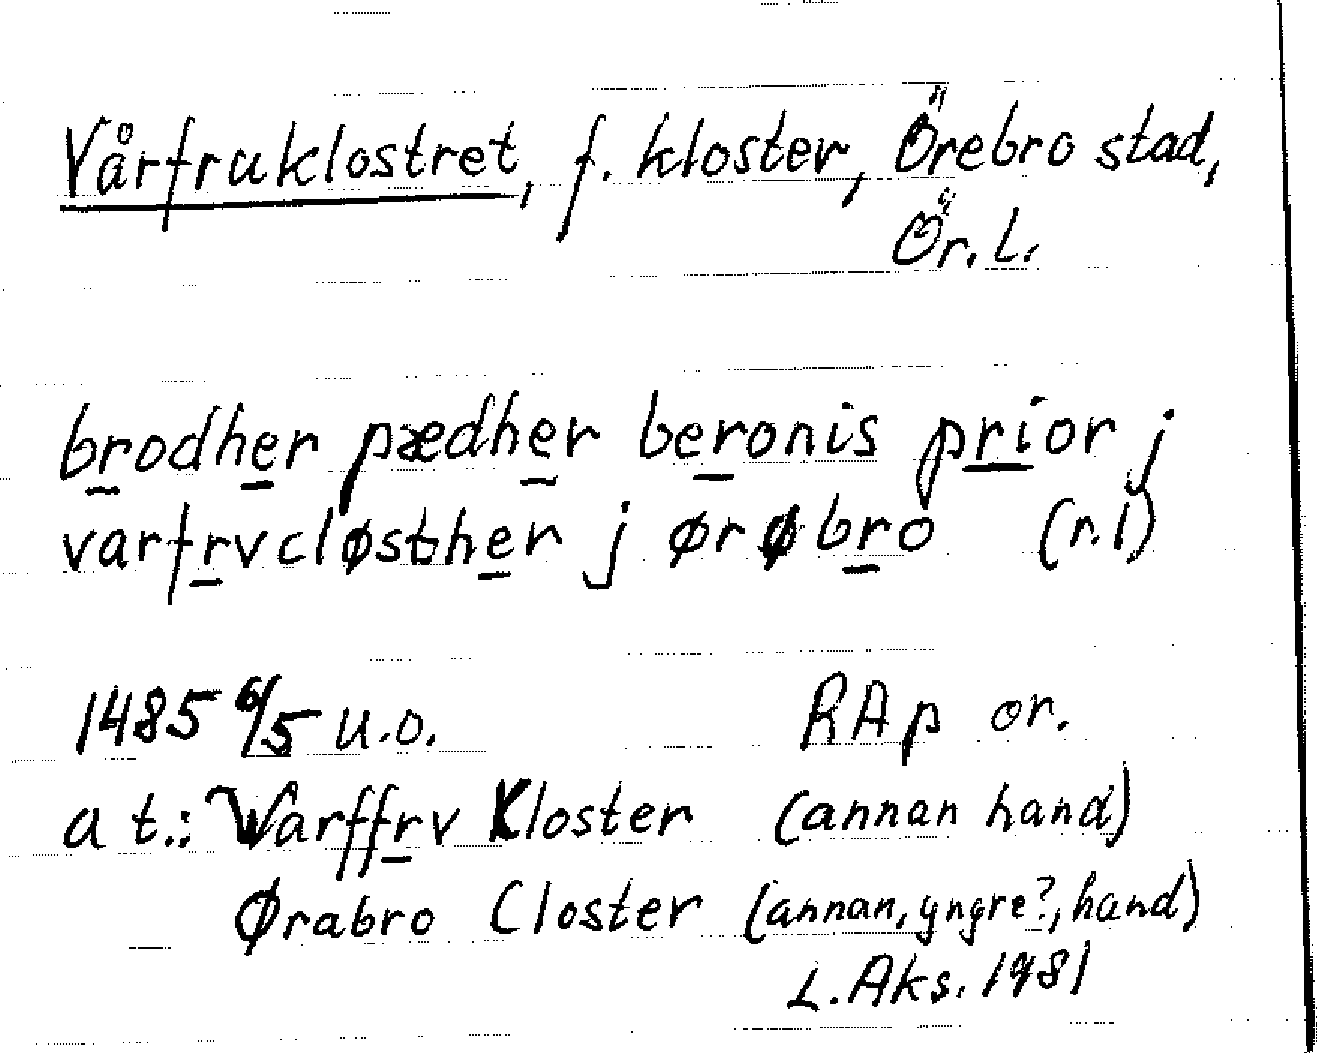 Vårfruklostret, f. kloster, Örebro stad,
Ör. L.
brodher pædher beronis prior j
varfrvcløsther j ørøbro (r.1)
1485 6/5 u.o. RAp or.
a t.: Warffrv Kloster (annan hand)
Ørabro Closter (annan, yngre?, hand)
L. Aks. 1981